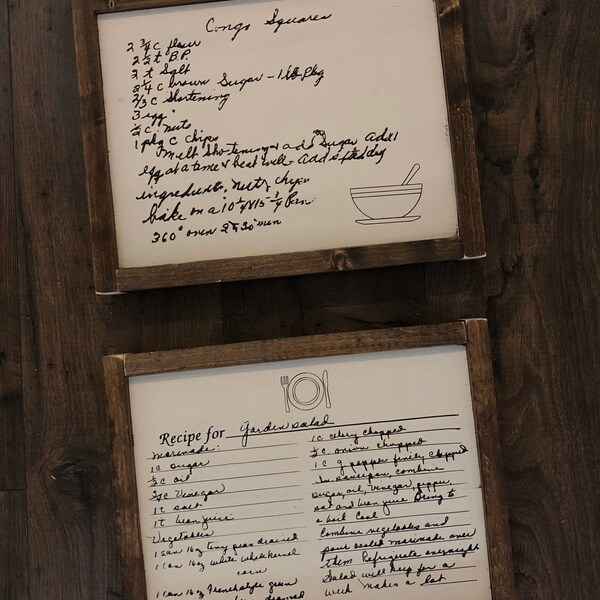 Congo Squares
2 3/4 c flour
2 1/2 t B.P.
t Salt
2 1/4 c brown Sugar - 1 lb Pkg
2/3 c Shortening
3 egg
1/2 c nuts
1 pkg c chips
Melt Shortening & add Sugar Add 1
egg at a time & beat well - Add sifted dry
ingredients, nuts chips
bake on a 10 1/4 x 15 3/4 Pan
360° oven 25 30 min
Recipe for Garden salad
Marinade:
1 c sugar
1/2 c oil
3/4 c Vinegar
1 t salt
1 t bean juice
Vegetables
1 can 16 oz tiny peas drained
1 can 16 oz white whole kernel
corn
1 can 16 oz French style green
drained
1 c celery chopped
1/2 c onion chopped
1 c g. pepper finely chopped
In saucepan, combine
sugar, oil, vinegar, pepper,
salt and bean juice Bring to
a boil Cool
Combine vegetables and
pour cooled marinade over
them Refrigerate overnight
Salad will keep for a
week makes a lot